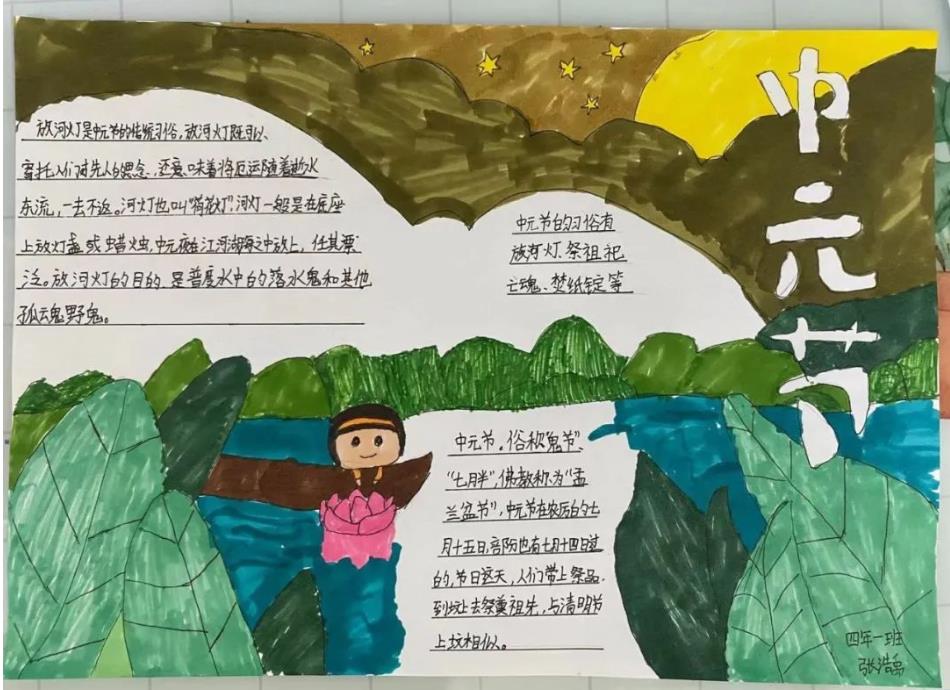 中元节
放河灯是中元节的传统习俗，放河灯既可以
寄托人们对先人的思念，还意味着将厄运随着逝水
东流，一去不返。河灯也叫“荷花灯”，河灯一般是在底座
上放灯盏或蜡烛，中元夜在江河湖海之中放上，任其漂
泛。放河灯的目的，是普度水中的落水鬼和其他
孤魂野鬼。
中元节的习俗有
放河灯、祭祖、祀
亡魂、焚纸锭等
中元节，俗称“鬼节”、
“七月半”，佛教称为“盂
兰盆节”，中元节在农历的七
月十五日，部份也有七月十四日过
的，节日这天，人们带上祭品，
到坟上去祭奠祖先，与清明节
上坟相似。
四年一班
张浩禹